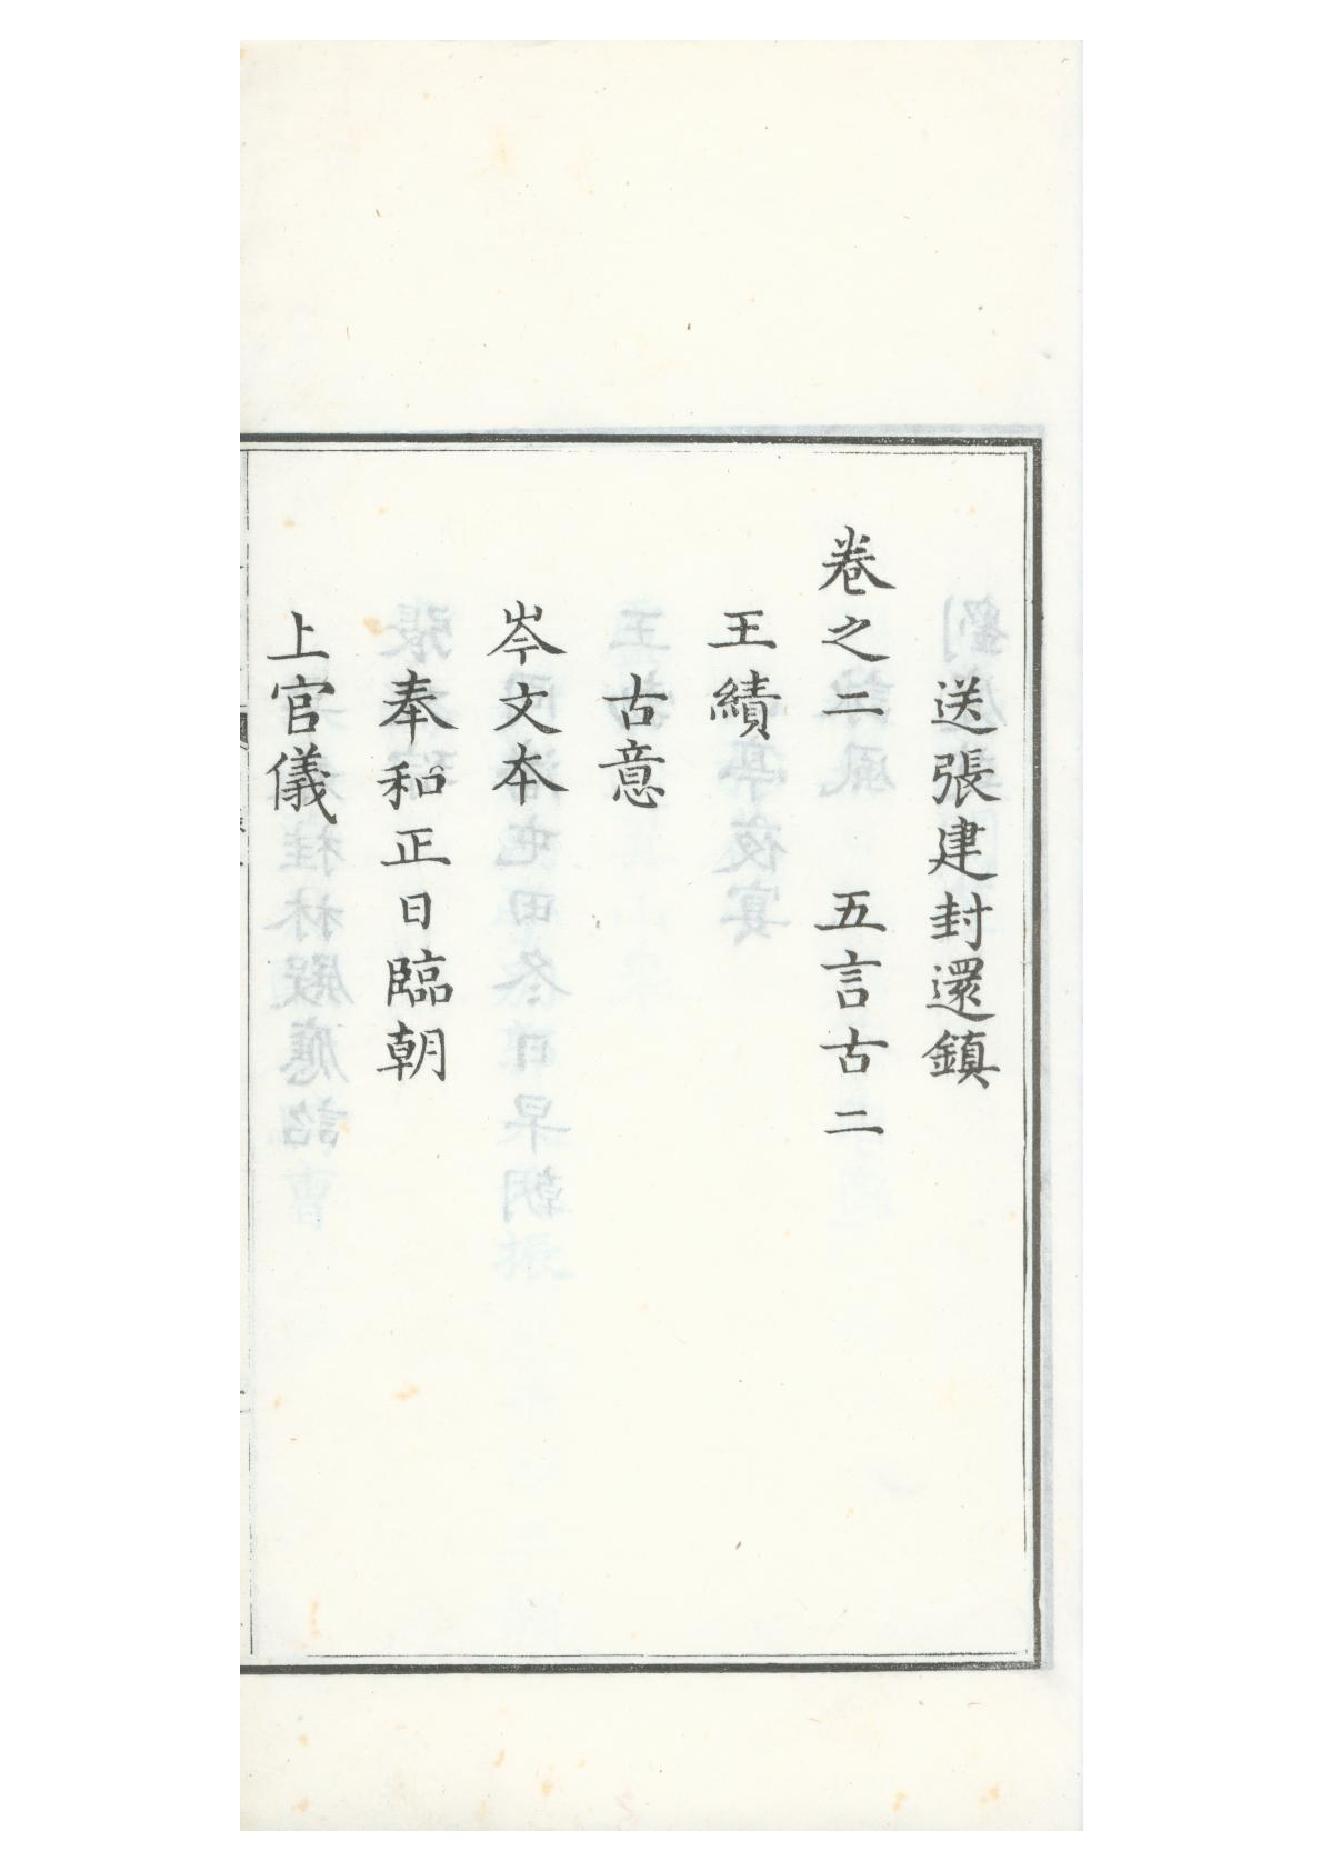 送張建封還鎮
卷之二　五言古二
王績
古意
岑文本
奉和正日臨朝
上官儀